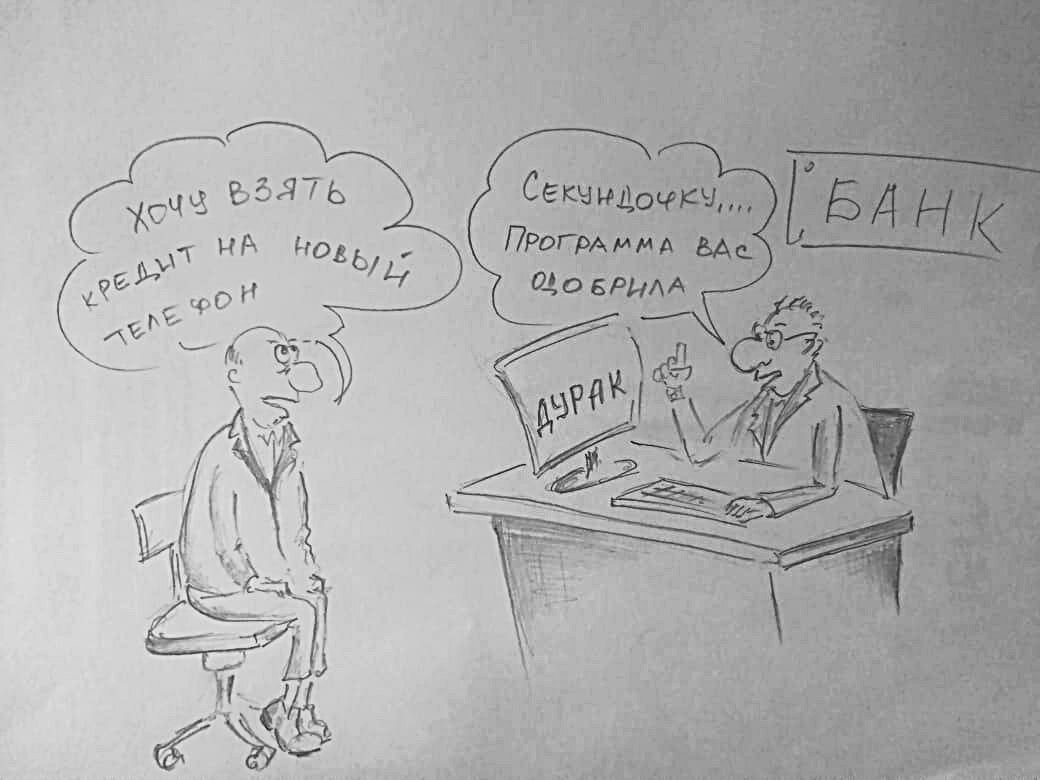 ХОЧУ ВЗЯТЬ
КРЕДИТ НА НОВЫЙ
ТЕЛЕФОН
СЕКУНДОЧКУ,....
ПРОГРАММА ВАС
ОДОБРИЛА
БАНК
ДУРАК